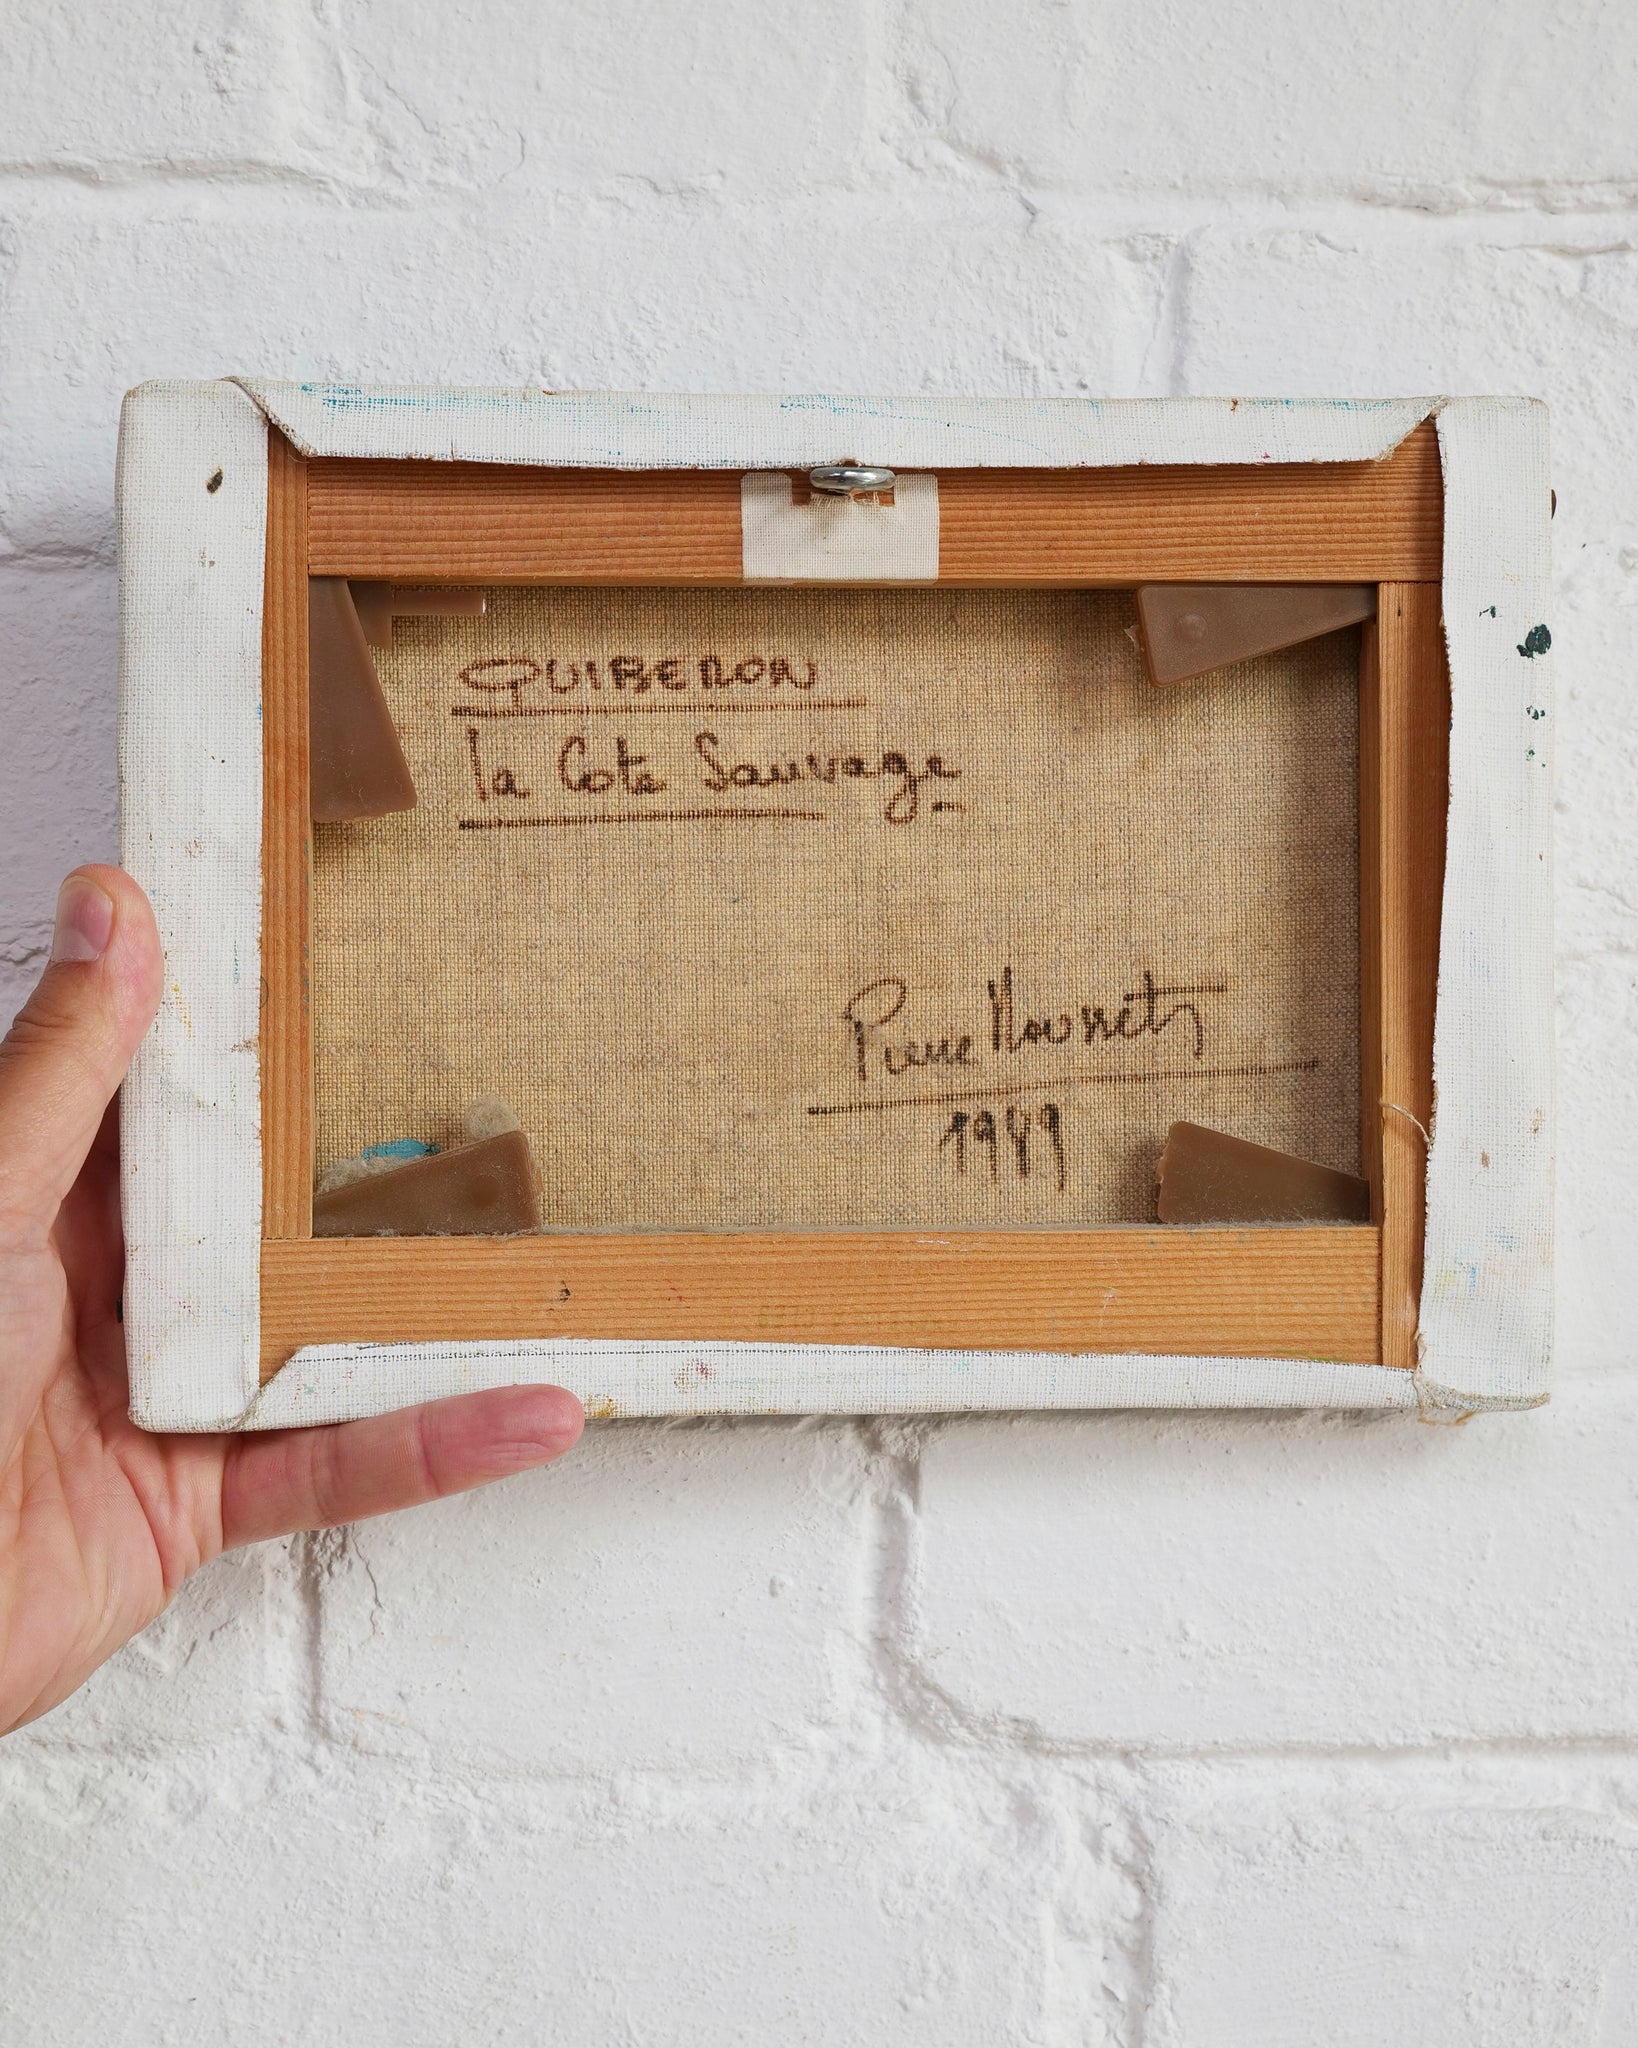 QUIBERON
la Cote Sauvage
Pierre Mousnets
1989